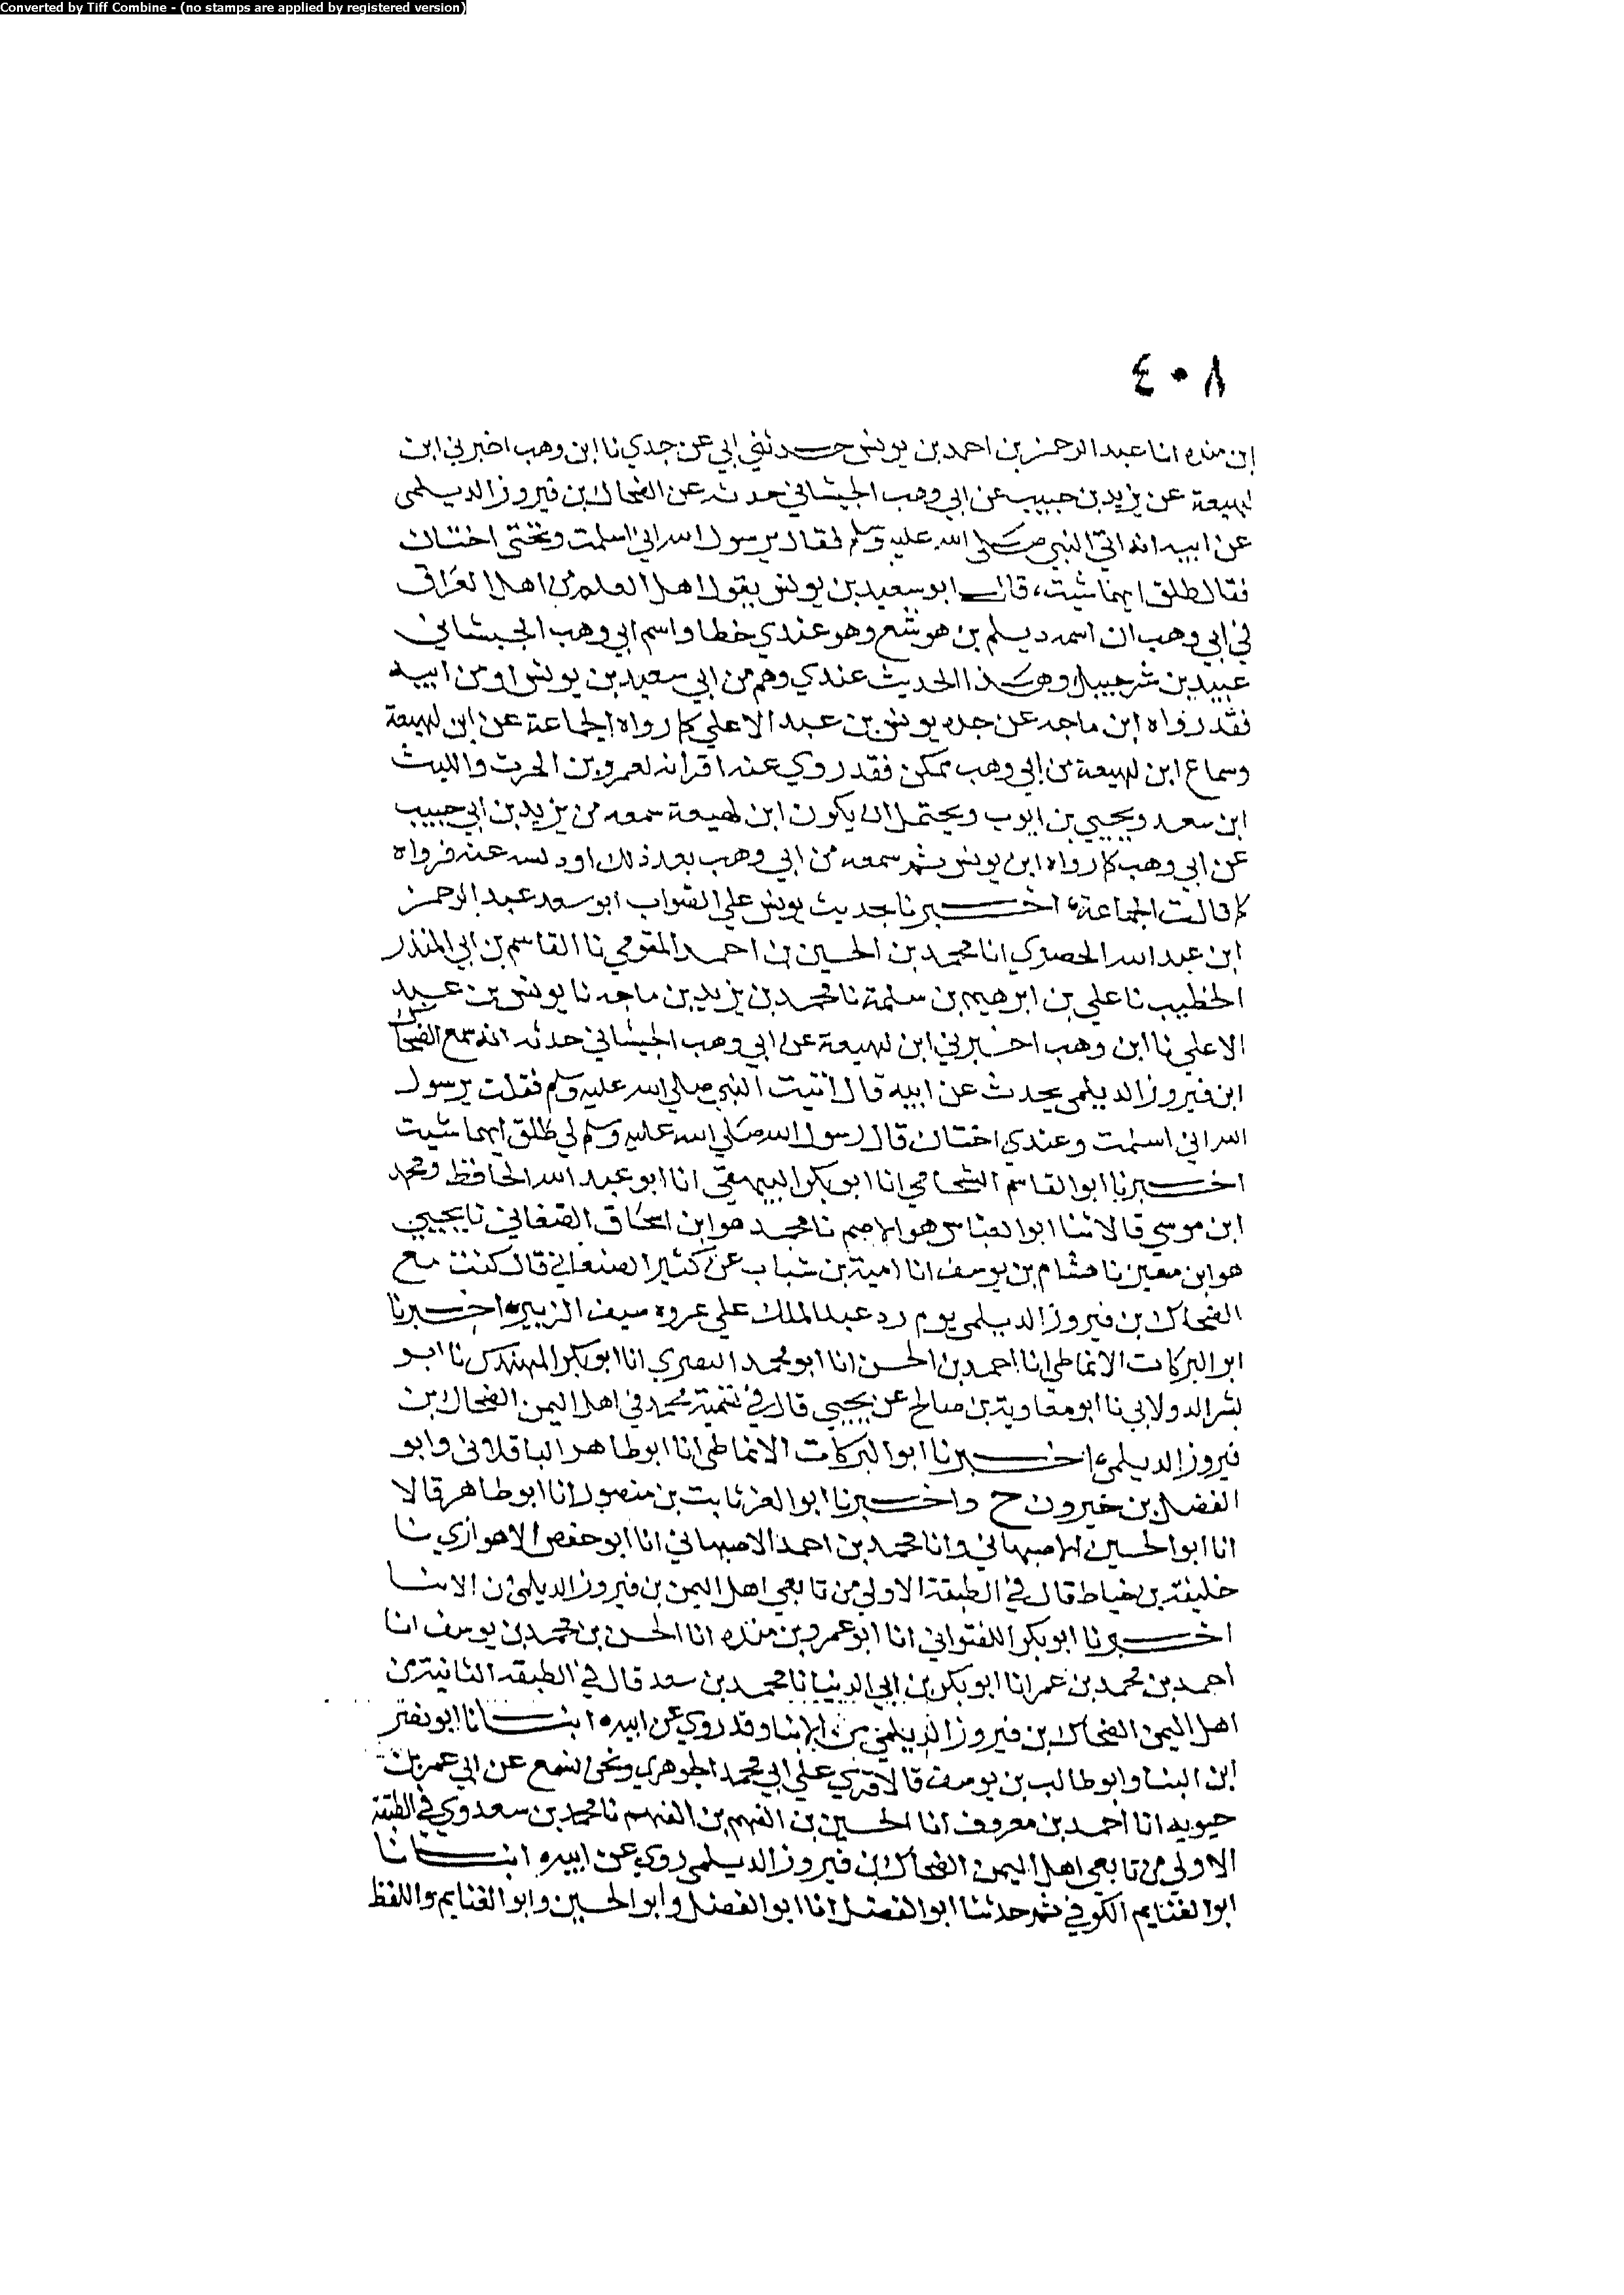 Converted by Tiff Combine - (no stamps are applied by registered version)
٤٠٨
ابن منده انا عبد الرحمن بن احمد بن يونس حدثني ابي عن جدي نا ابن وهب اخبرني ابن
لهيعة عن يزيد بن حبيب عن ابي وهب الجيشاني حدثه عن الضحاك بن فيروز الديلمي
عن ابيه انه اتى النبي صلى الله عليه وسلم فقال يرسول الله اني اسلمت وتحتي اختان
فقال طلق ايهما شيت، قال ابو سعيد بن يونس يقول اهل العلم من اهل العراق
في ابي وهب ان اسمه ديلم بن هوشع وهو عندي خطا واسم ابي وهب الجيشاني
عبيد بن شرحبيل وهكذا الحديث عندي وهم من ابي سعيد بن يونس او من ابيه
فقد رواه ابن ماجه عن جده يونس بن عبد الاعلي كما رواه الجماعة عن ابن لهيعة
وسماع ابن لهيعة من ابي وهب ممكن فقد روي عنه اقرانه لعمرو بن الحرث والليث
ابن سعد ويحيي بن ايوب ويحتمل ان يكون ابن لهيعة سمعه من يزيد بن ابي حبيب
عن ابي وهب كما رواه ابن يونس ثم سمعه من ابي وهب بعد ذلك او دلسه عنه فرواه
كما قالت الجماعة، اخبرنا بحديث يونس علي الصواب ابو سعد عبد الرحمن
ابن عبد الله الحصري انا محمد بن الحسين بن احمد المقومي نا القاسم بن ابي المنذر
الخطيب نا علي بن ابرهيم بن سلمة نا محمد بن يزيد بن ماجه نا يونس بن عبد
الاعلي نا ابن وهب اخبرني ابن لهيعة عن ابي وهب الجيشاني حدثه انه سمع الضحاك
ابن فيروز الديلمي يحدث عن ابيه قال اتيت النبي صلي الله عليه وسلم فقلت يرسول
الله اني اسلمت وعندي اختان قال رسول الله صلي الله عليه وسلم لي طلق ايهما شيت
اخبرنا ابو القاسم الشحامي انا ابو بكر البيهقي انا ابو عبد الله الحافظ ومحمد
ابن موسي قالا ثنا ابو العباس هو الاصم نا محمد هو ابن اسحاق الصغاني نا يحيي
هو ابن معين نا هشام بن يوسف انا امية بن شباب عن كثير الصنعاني قال كنت مع
الضحاك بن فيروز الديلمي يوم رد عبد الملك علي عروه سيف الزبير، اخبرنا
ابو البركات الانماطي انا احمد بن الحسن انا ابو محمد البصري انا ابو بكر المهندس نا ابو
بشر الدولابي نا ابو معاوية بن صالح عن يحيي قال في تسمية محمد في اهل اليمن الضحاك بن
فيروز الديلمي، اخبرنا ابو البركات الانماطي انا ابو طاهر الباقلاني وابو
الفضل بن خيرون ح واخبرنا ابو العز ثابت بن منصور انا ابو طاهر قالا
انا ابو الحسين الاصبهاني وانا محمد بن احمد الاصبهاني انا ابو حفص الاهوازي نا
خليفة بن خياط قال في الطبقة الاولي من تابعي اهل اليمن بن فيروز الديلمي ن الابنا
اخبرنا ابو بكر اللفتواني انا ابو عمرو بن منده انا الحسن بن محمد بن يوسف انا
احمد بن محمد بن عمر انا ابو بكر بن ابي الدنيا نا محمد بن سعد قال في الطبقه الثانية من
اهل اليمن الضحاك بن فيروز الديلمي من الابنا وقد روي عن ابيه، انبانا ابو نصر
ابن البنا وابو طالب بن يوسف قالا قري علي ابي محمد الجوهري ونحن نسمع عن ابي عمر بن
حيويه انا احمد بن معروف انا الحسين بن الفهم بن الفهم نا محمد بن سعد وي في الطبقة
الاولي من تابعي اهل اليمن الضحاك بن فيروز الديلمي روي عن ابيه، انبانا
ابو الغنايم الكوفي ثم حدثنا ابو الفضل انا ابو الفضل وابو الحسين وابو الغنايم واللفظ